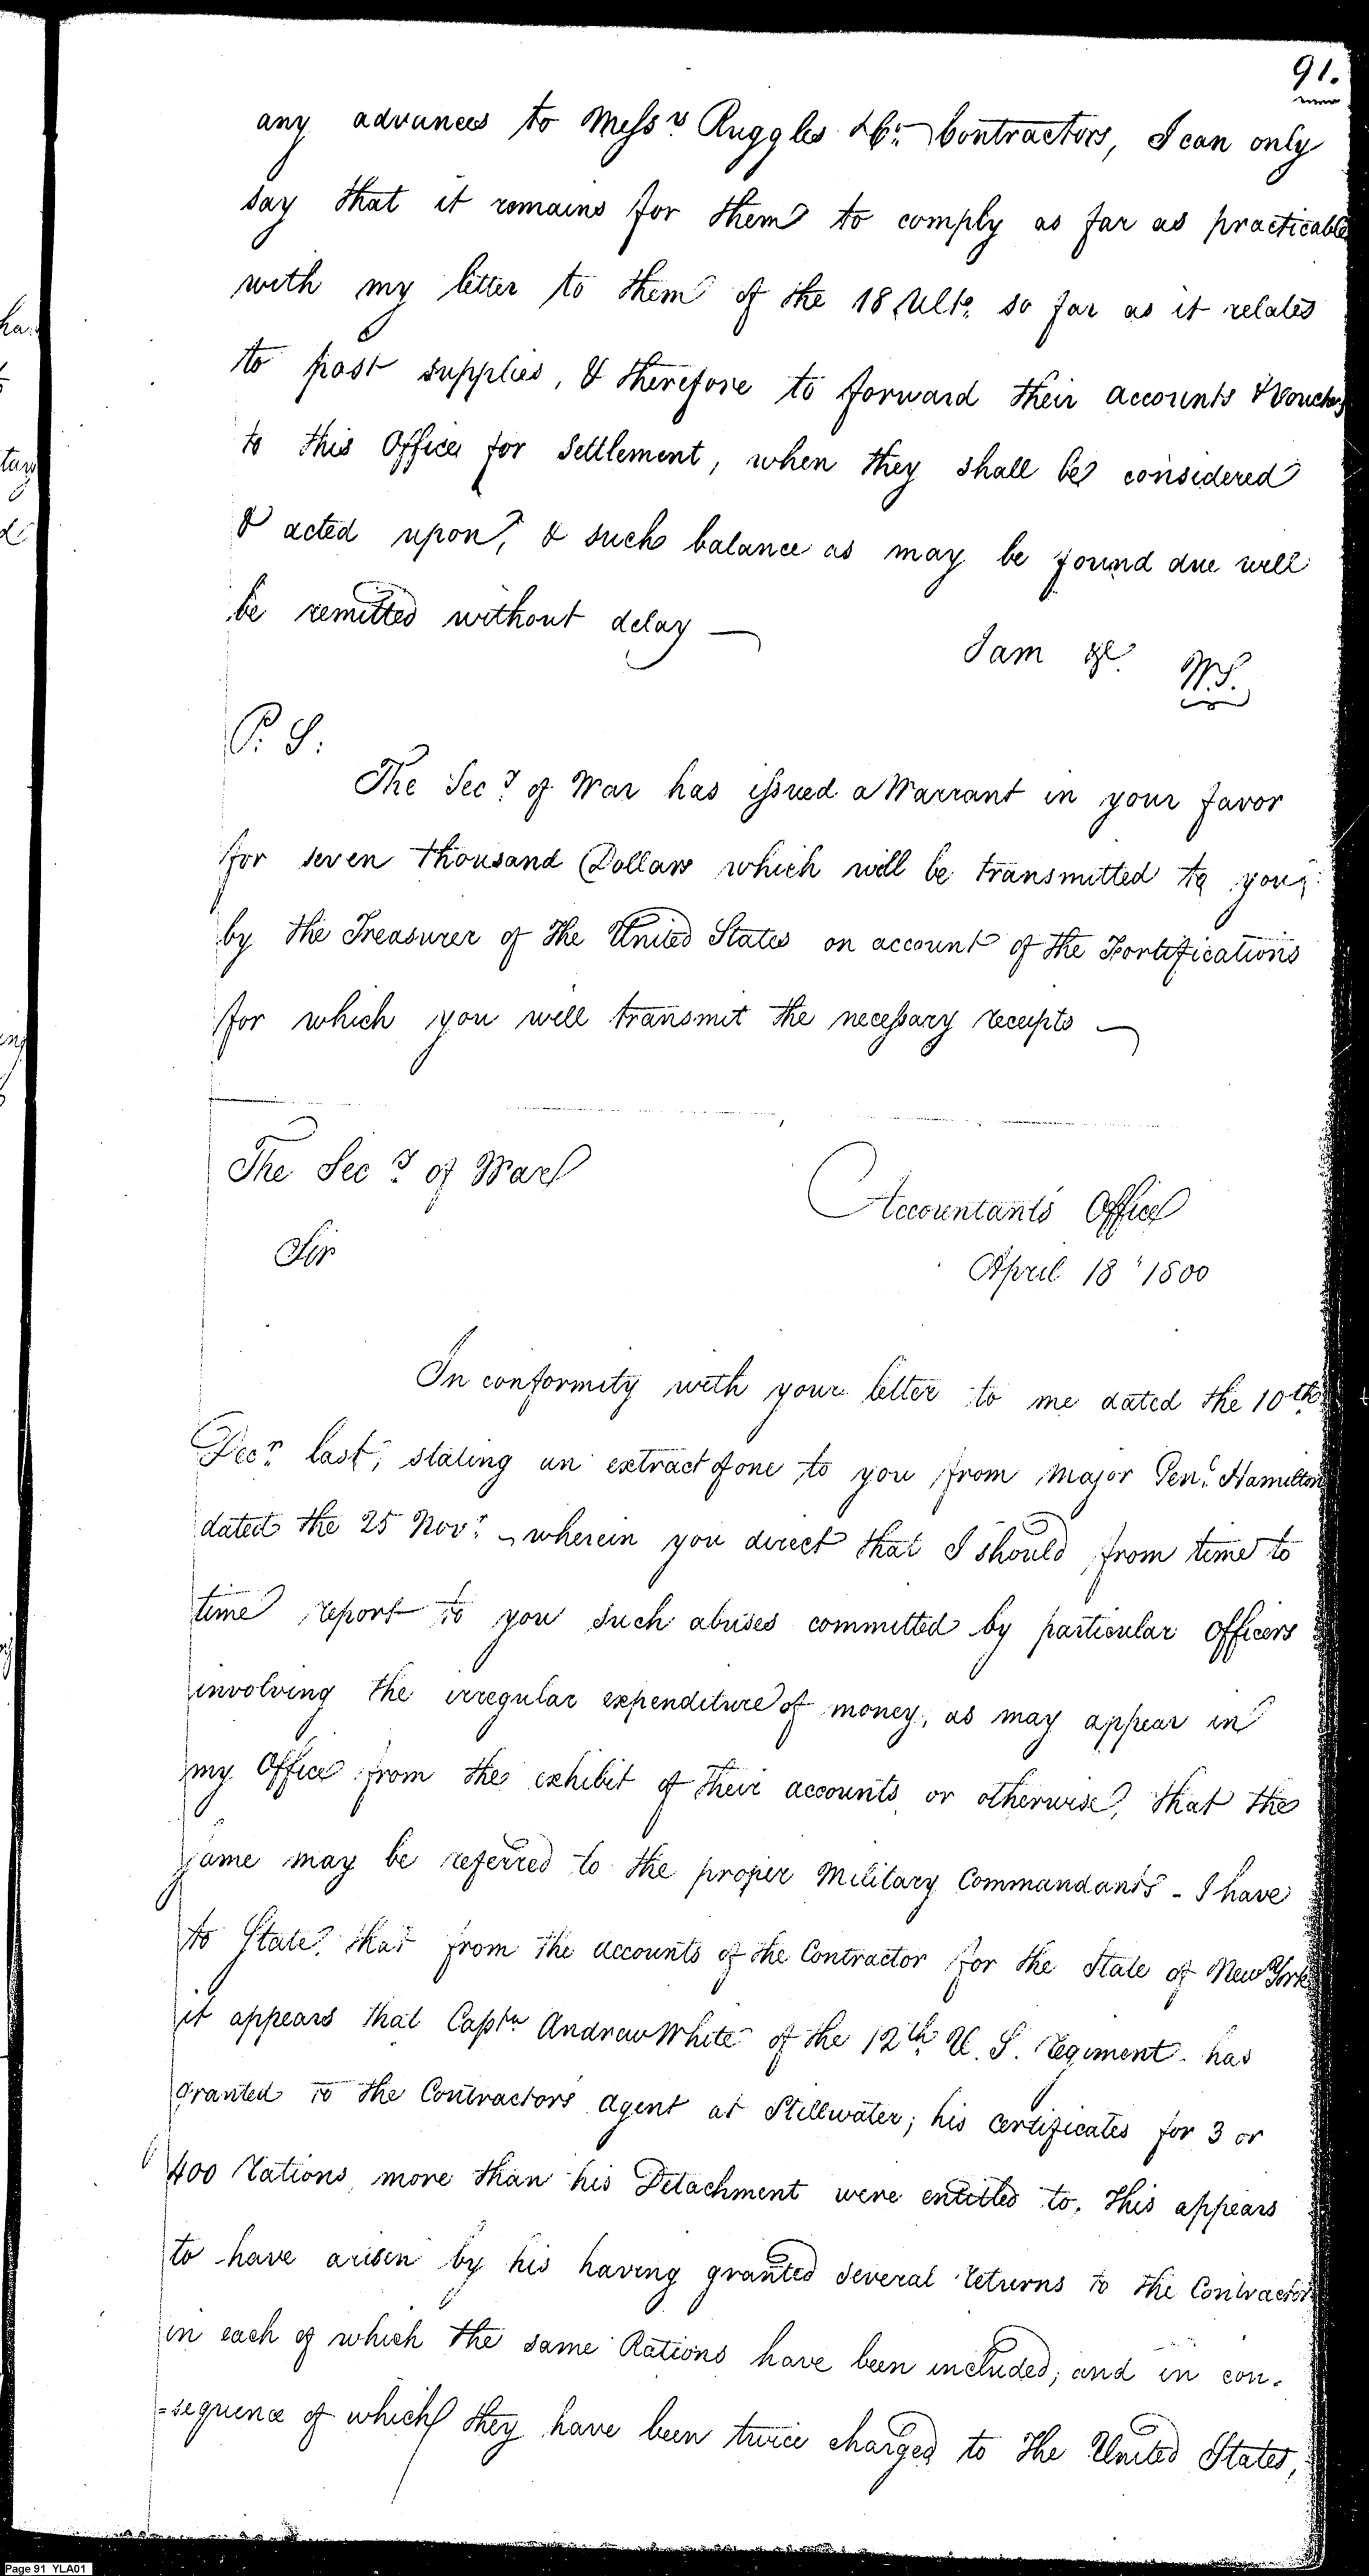 91.
any advances to Messrs Ruggles & Co. Contractors, I can only
say that it remains for them to comply as far as practicable
with my letter to them of the 18 Ulto. so far as it relates
to past supplies, & therefore to forward their accounts & Vouchers
to this Office for Settlement, when they shall be considered
& acted upon, & such balance as may be found due will
be remitted without delay —
I am &c. W.S.
P. S:
The Secy. of War has issued a Warrant in your favor
for seven thousand Dollars which will be transmitted to you
by the Treasurer of the United States on account of the Fortifications
for which you will transmit the necessary receipts —
The Secy. of War
Accountant's Office
Sir
April 18 1800
In conformity with your letter to me dated the 10th
Decr. last, stating an extract of one to you from Major Genl. Hamilton
dated the 25 Novr. - wherein you direct that I should from time to
time report to you such abuses committed by particular Officers
involving the irregular expenditure of money, as may appear in
my Office from the exhibit of their accounts or otherwise, that the
same may be referred to the proper Military Commandants - I have
to State, that from the accounts of the Contractor for the State of New York
it appears that Captn Andrew White of the 12th U. S. Regiment has
granted to the Contractors agent at Stillwater; his certificates for 3 or
400 Rations more than his Detachment were entitled to, this appears
to have arisen by his having granted several returns to the Contractor
in each of which the same Rations have been included; and in con-
=sequence of which they have been twice charged to the United States,
Page 91 YLA01